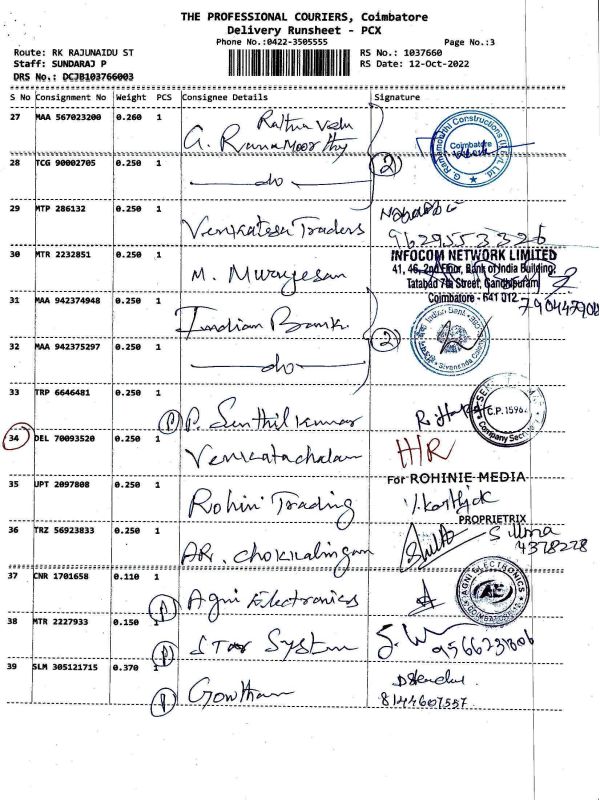 THE PROFESSIONAL COURIERS, Coimbatore
Delivery Runsheet - PCX
Phone No.:0422-3505555
Page No.:3
Route: RK RAJUNAIDU ST
RS No.: 1037660
Staff: SUNDARAJ P
RS Date: 12-Oct-2022
DRS No.: DCJB103766003
S No Consignment No Weight PCS Consignee Details Signature
27 MAA 567023200 0.260 1 G. Ramamoorthy
Coimbatore
28 TCG 90002705 0.250 1 do 2
29 MTP 286132 0.250 1 Venkatesa Traders
9629553326
30 MTR 2232851 0.250 1 M. Murugesan
INFOCOM NETWORK LIMITED
41, 46, 2nd Floor, Bank of India Building,
Tatabad 7th Street, Gandhipuram
Coimbatore - 641 012.
31 MAA 942374948 0.250 1 Indian Bank
32 MAA 942375297 0.250 1 do 2
33 TRP 6646481 0.250 1 P P. Senthil kumar
C.P. 1596
Company Secretary
34 DEL 70093520 0.250 1 Venkatachalam H/R
35 UPT 2097808 0.250 1 Rohini Trading
For ROHINIE MEDIA
V. Karthick
PROPRIETRIX
36 TRZ 56923833 0.250 1 AR. Chokkalingam
4378228
37 CNR 1701658 0.110 1 P Agni Electronics
AGNI ELECTRONICS
AE
COIMBATORE
38 MTR 2227933 0.150 1 P Star System
9566231806
39 SLM 305121715 0.370 1 P Gowtham
8144607557